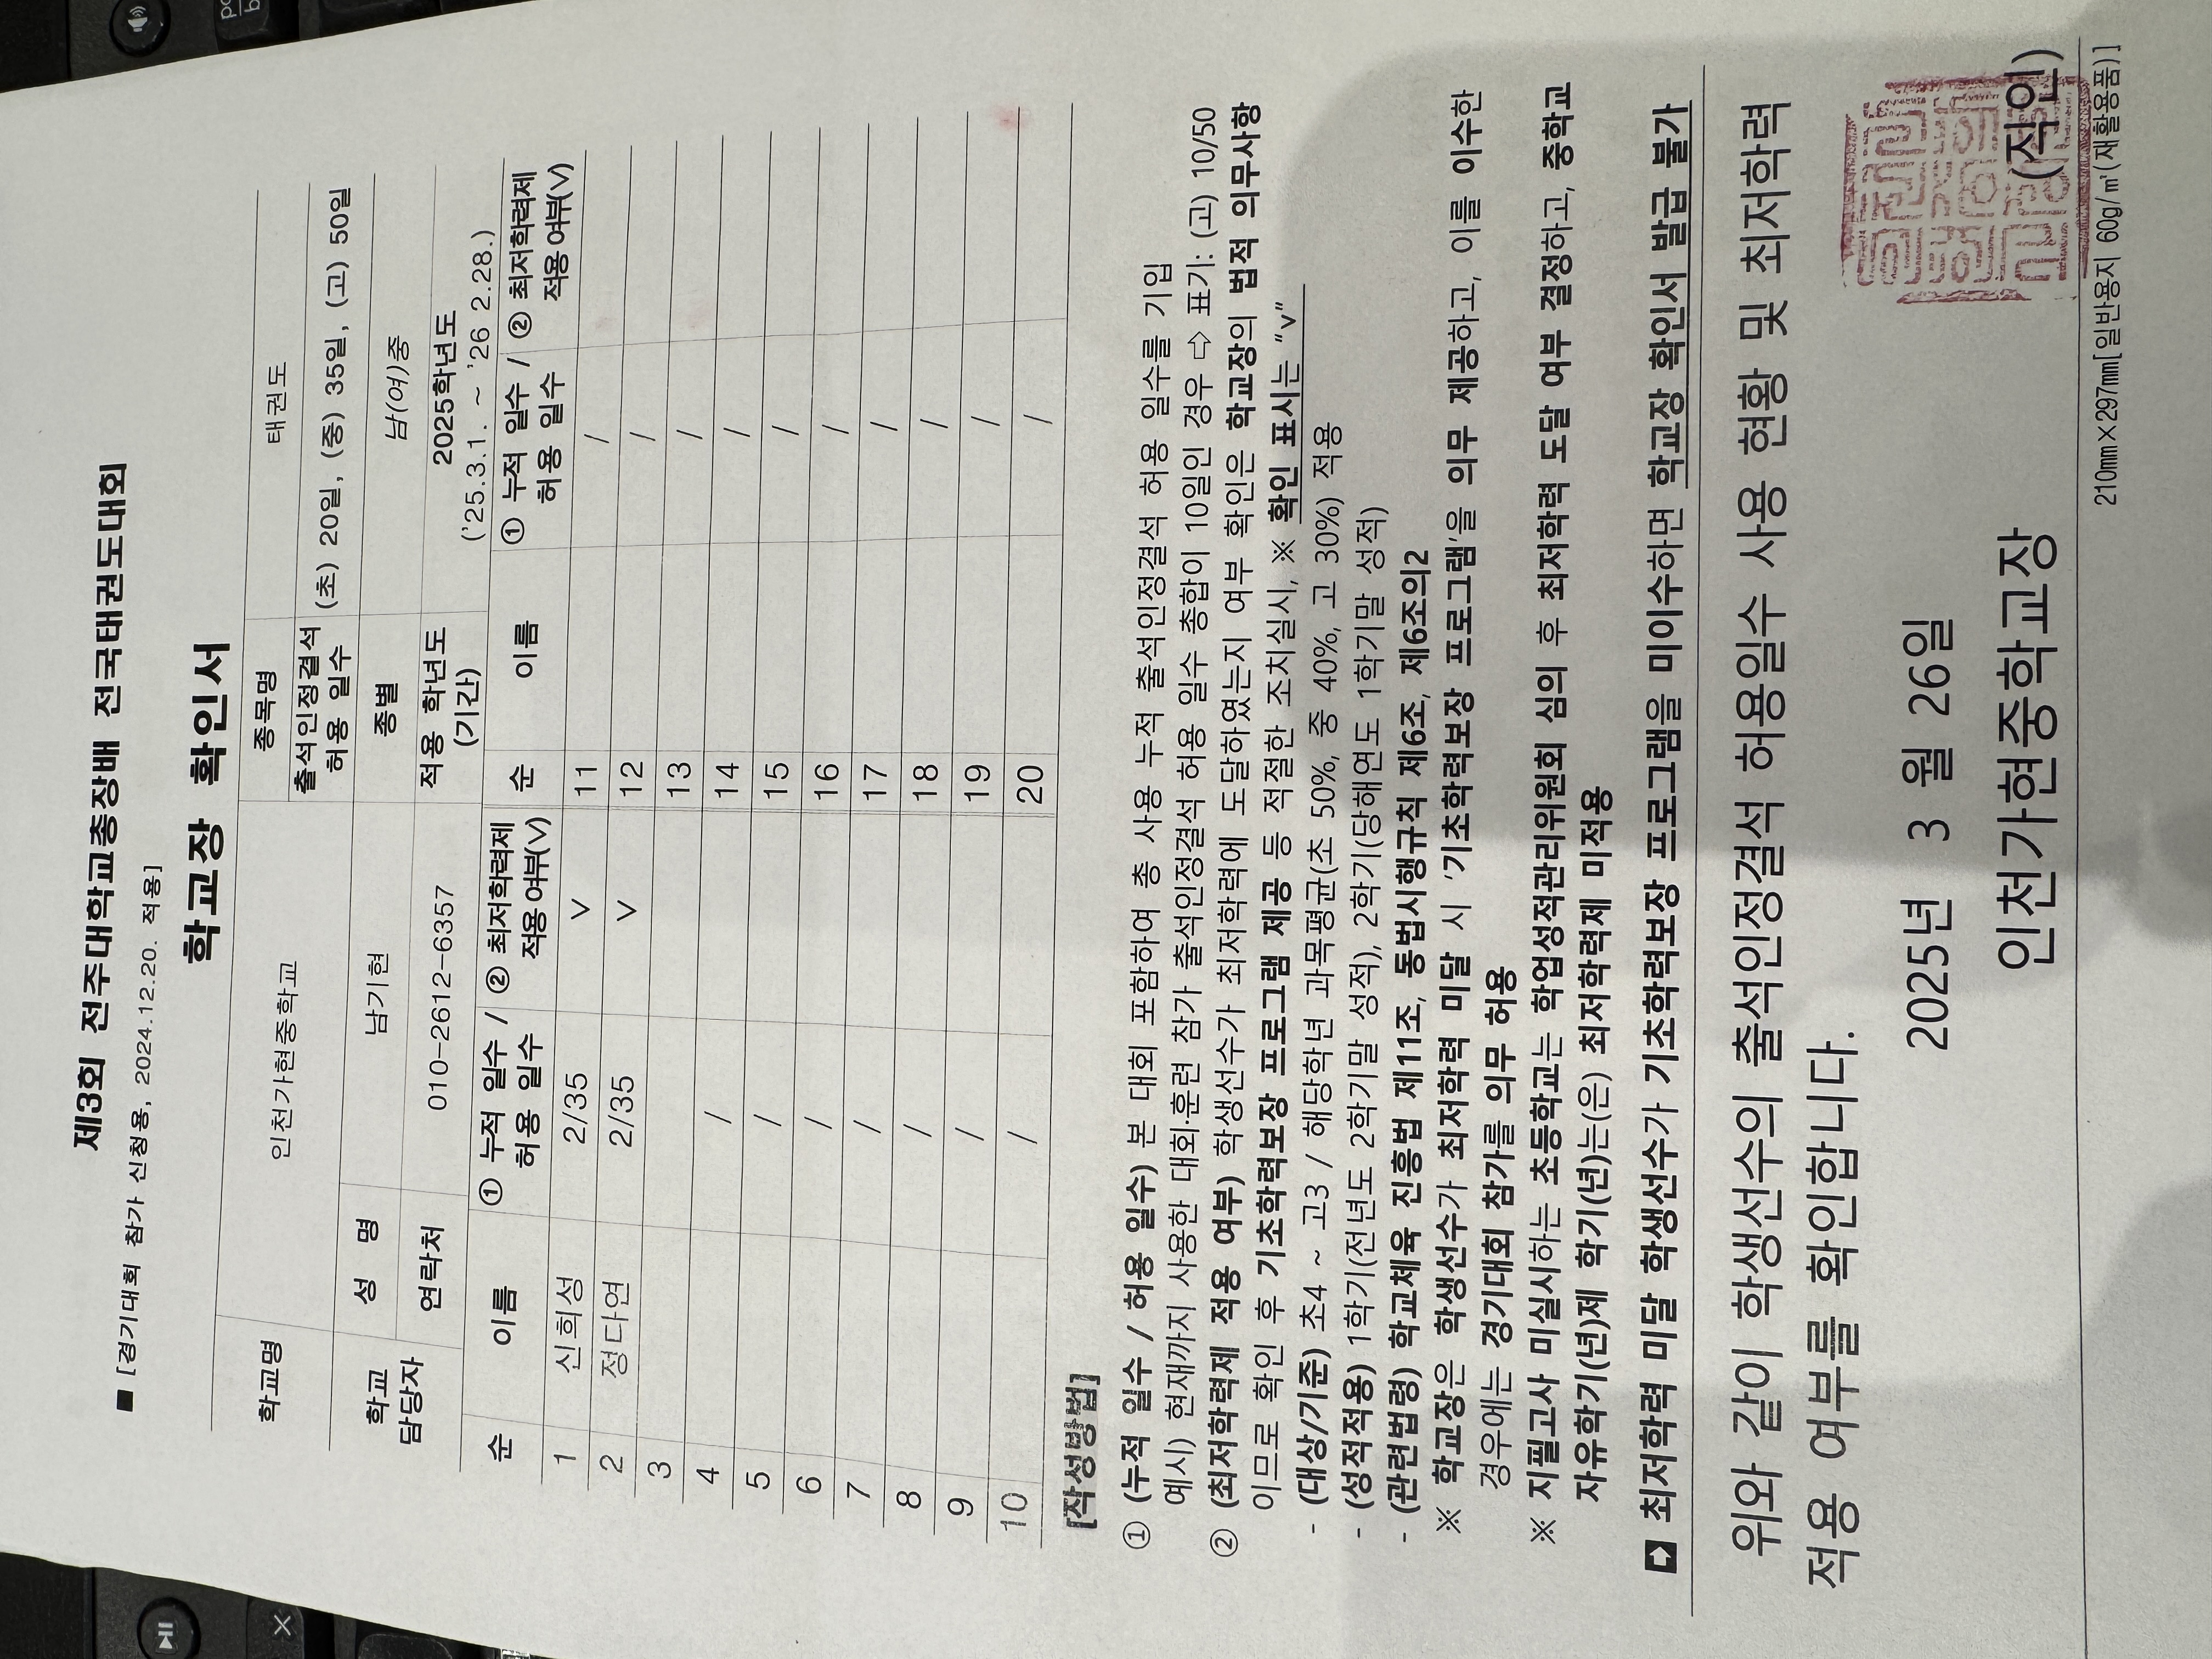 제3회 전주대학교총장배 전국태권도대회
■ [경기대회 참가 신청용, 2024.12.20. 적용]
학교장 확인서
학교명 인천가현중학교 종목명 태권도
출석인정결석 허용 일수 (초) 20일, (중) 35일, (고) 50일
학교 담당자 성 명 남기현 종별 남(여)중
연락처 010-2612-6357 적용 학년도 (기간) 2025학년도 ('25.3.1. ~ '26 2.28.)
순 이름 ① 누적 일수 / 허용 일수 ② 최저학력제 적용여부(V) 순 이름 ① 누적 일수 / 허용 일수 ② 최저학력제 적용여부(V)
1 신희성 2/35 V 11 /
2 정다연 2/35 V 12 /
3 13 /
4 / 14 /
5 / 15 /
6 / 16 /
7 / 17 /
8 / 18 /
9 / 19 /
10 / 20 /
[작성방법]
① (누적 일수 / 허용 일수) 본 대회 포함하여 총 사용 누적 출석인정결석 허용 일수를 기입
예시) 현재까지 사용한 대회·훈련 참가 출석인정결석 허용 일수 총합이 10일인 경우 ⇨ 표기: (고) 10/50
② (최저학력제 적용 여부) 학생선수가 최저학력에 도달하였는지 여부 확인은 학교장의 법적 의무사항
이므로 확인 후 기초학력보장 프로그램 제공 등 적절한 조치실시, ※ 확인 표시는 "v"
- (대상/기준) 초4 ~ 고3 / 해당학년 과목평균(초 50%, 중 40%, 고 30%) 적용
- (성적적용) 1학기(전년도 2학기말 성적), 2학기(당해연도 1학기말 성적)
- (관련법령) 학교체육 진흥법 제11조, 동법시행규칙 제6조, 제6조의2
※ 학교장은 학생선수가 최저학력 미달 시 '기초학력보장 프로그램'을 의무 제공하고, 이를 이수한
경우에는 경기대회 참가를 의무 허용
※ 지필고사 미실시하는 초등학교는 학업성적관리위원회 심의 후 최저학력 도달 여부 결정하고, 중학교
자유학기(년)제 학기(년)는(은) 최저학력제 미적용
➡ 최저학력 미달 학생선수가 기초학력보장 프로그램을 미이수하면 학교장 확인서 발급 불가
위와 같이 학생선수의 출석인정결석 허용일수 사용 현황 및 최저학력
적용 여부를 확인합니다.
2025년 3 월 26일
인천가현중학교장 (직인)
210㎜×297㎜[일반용지 60g/㎡(재활용품)]